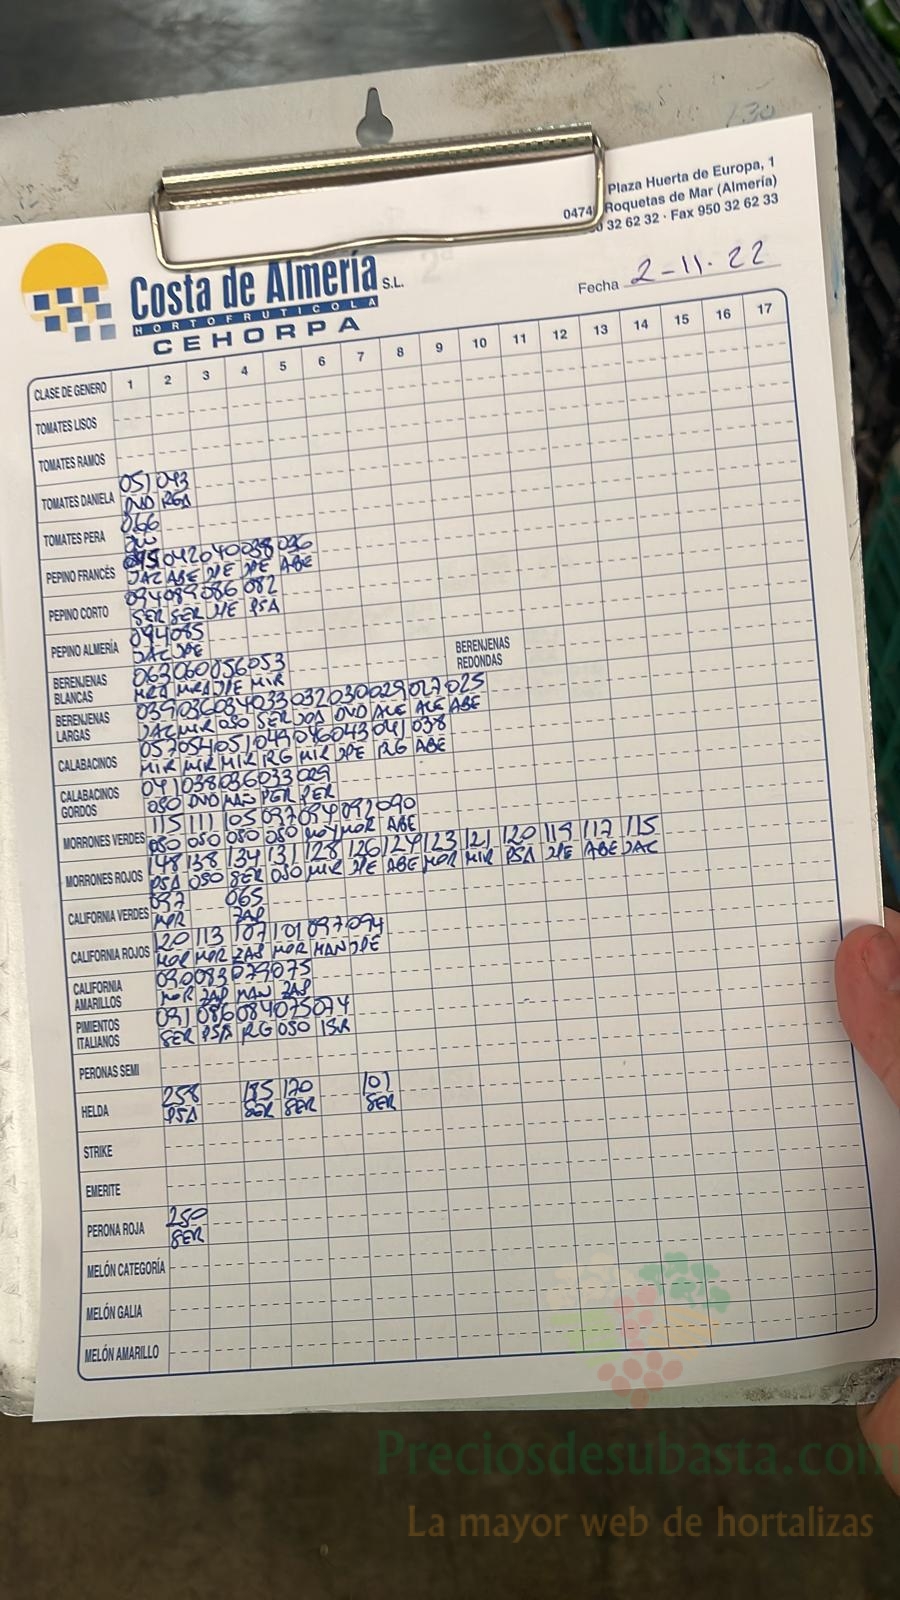 Plaza Huerta de Europa, 1
0474 Roquetas de Mar (Almería)
0 32 62 32 · Fax 950 32 62 33
Costa de Almería S.L.
HORTOFRUTICOLA
CEHORPA
Fecha 2-11-22
CLASE DE GENERO 1 2 3 4 5 6 7 8 9 10 11 12 13 14 15 16 17
TOMATES LISOS
TOMATES RAMOS
TOMATES DANIELA 051 043
DVD RGA
TOMATES PERA 066
PEPINO FRANCÉS 042 040 038 036
JAC ABE JPE JPE ABE
PEPINO CORTO 094 089 086 082
SER SER JPE PSA
PEPINO ALMERÍA 094 085
JAC JPE
BERENJENAS BLANCAS 063 060 056 053
MRA MRA JPE MIR
BERENJENAS REDONDAS
BERENJENAS LARGAS 039 036 034 033 032 030 029 027 025
JAC MIR OSO SER DVD ALE ALE ABE
CALABACINOS 057 054 051 049 046 043 041 038
MIR MIR MIR RG MIR JPE RG ABE
CALABACINOS GORDOS 041 038 036 033 029
OSO DVD MAN PER PER
MORRONES VERDES 115 111 105 097 094 092 090
OSO OSO OSO OSO MOR ABE
MORRONES ROJOS 148 138 134 131 128 126 124 123 121 120 119 117 115
PSA OSO SER OSO MIR JPE ABE MOR MIR PSA JPE ABE JAC
CALIFORNIA VERDES 097 065
MOR ZAP
CALIFORNIA ROJOS 120 113 107 101 097 094
MOR MOR ZAP MOR MAN JPE
CALIFORNIA AMARILLOS 090 083 079 075
MOR ZAP MAN ZAP
PIMIENTOS ITALIANOS 091 086 084 075 074
SER PSA RG OSO ISR
PERONAS SEMI
HELDA 258 185 170 101
PSA SER SER SER
STRIKE
EMERITE
PERONA ROJA 250
SER
MELÓN CATEGORÍA
MELÓN GALIA
MELÓN AMARILLO
Preciosdesubasta.com
La mayor web de hortalizas